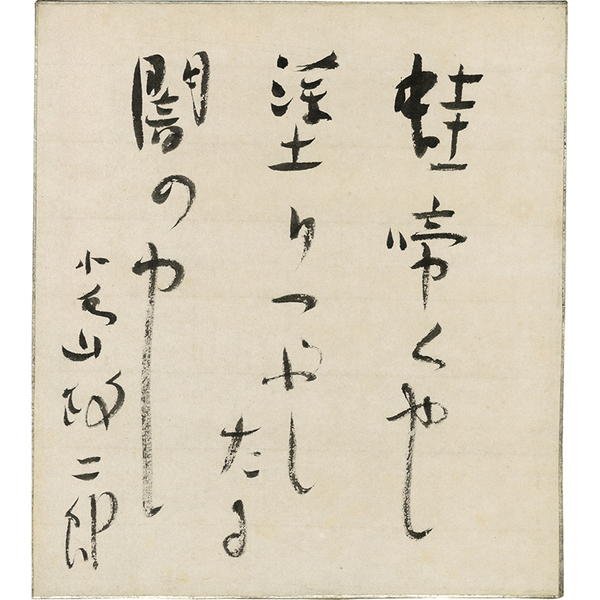 蛙啼くや
塗りつぶし
たる
闇の中
小島政二郎